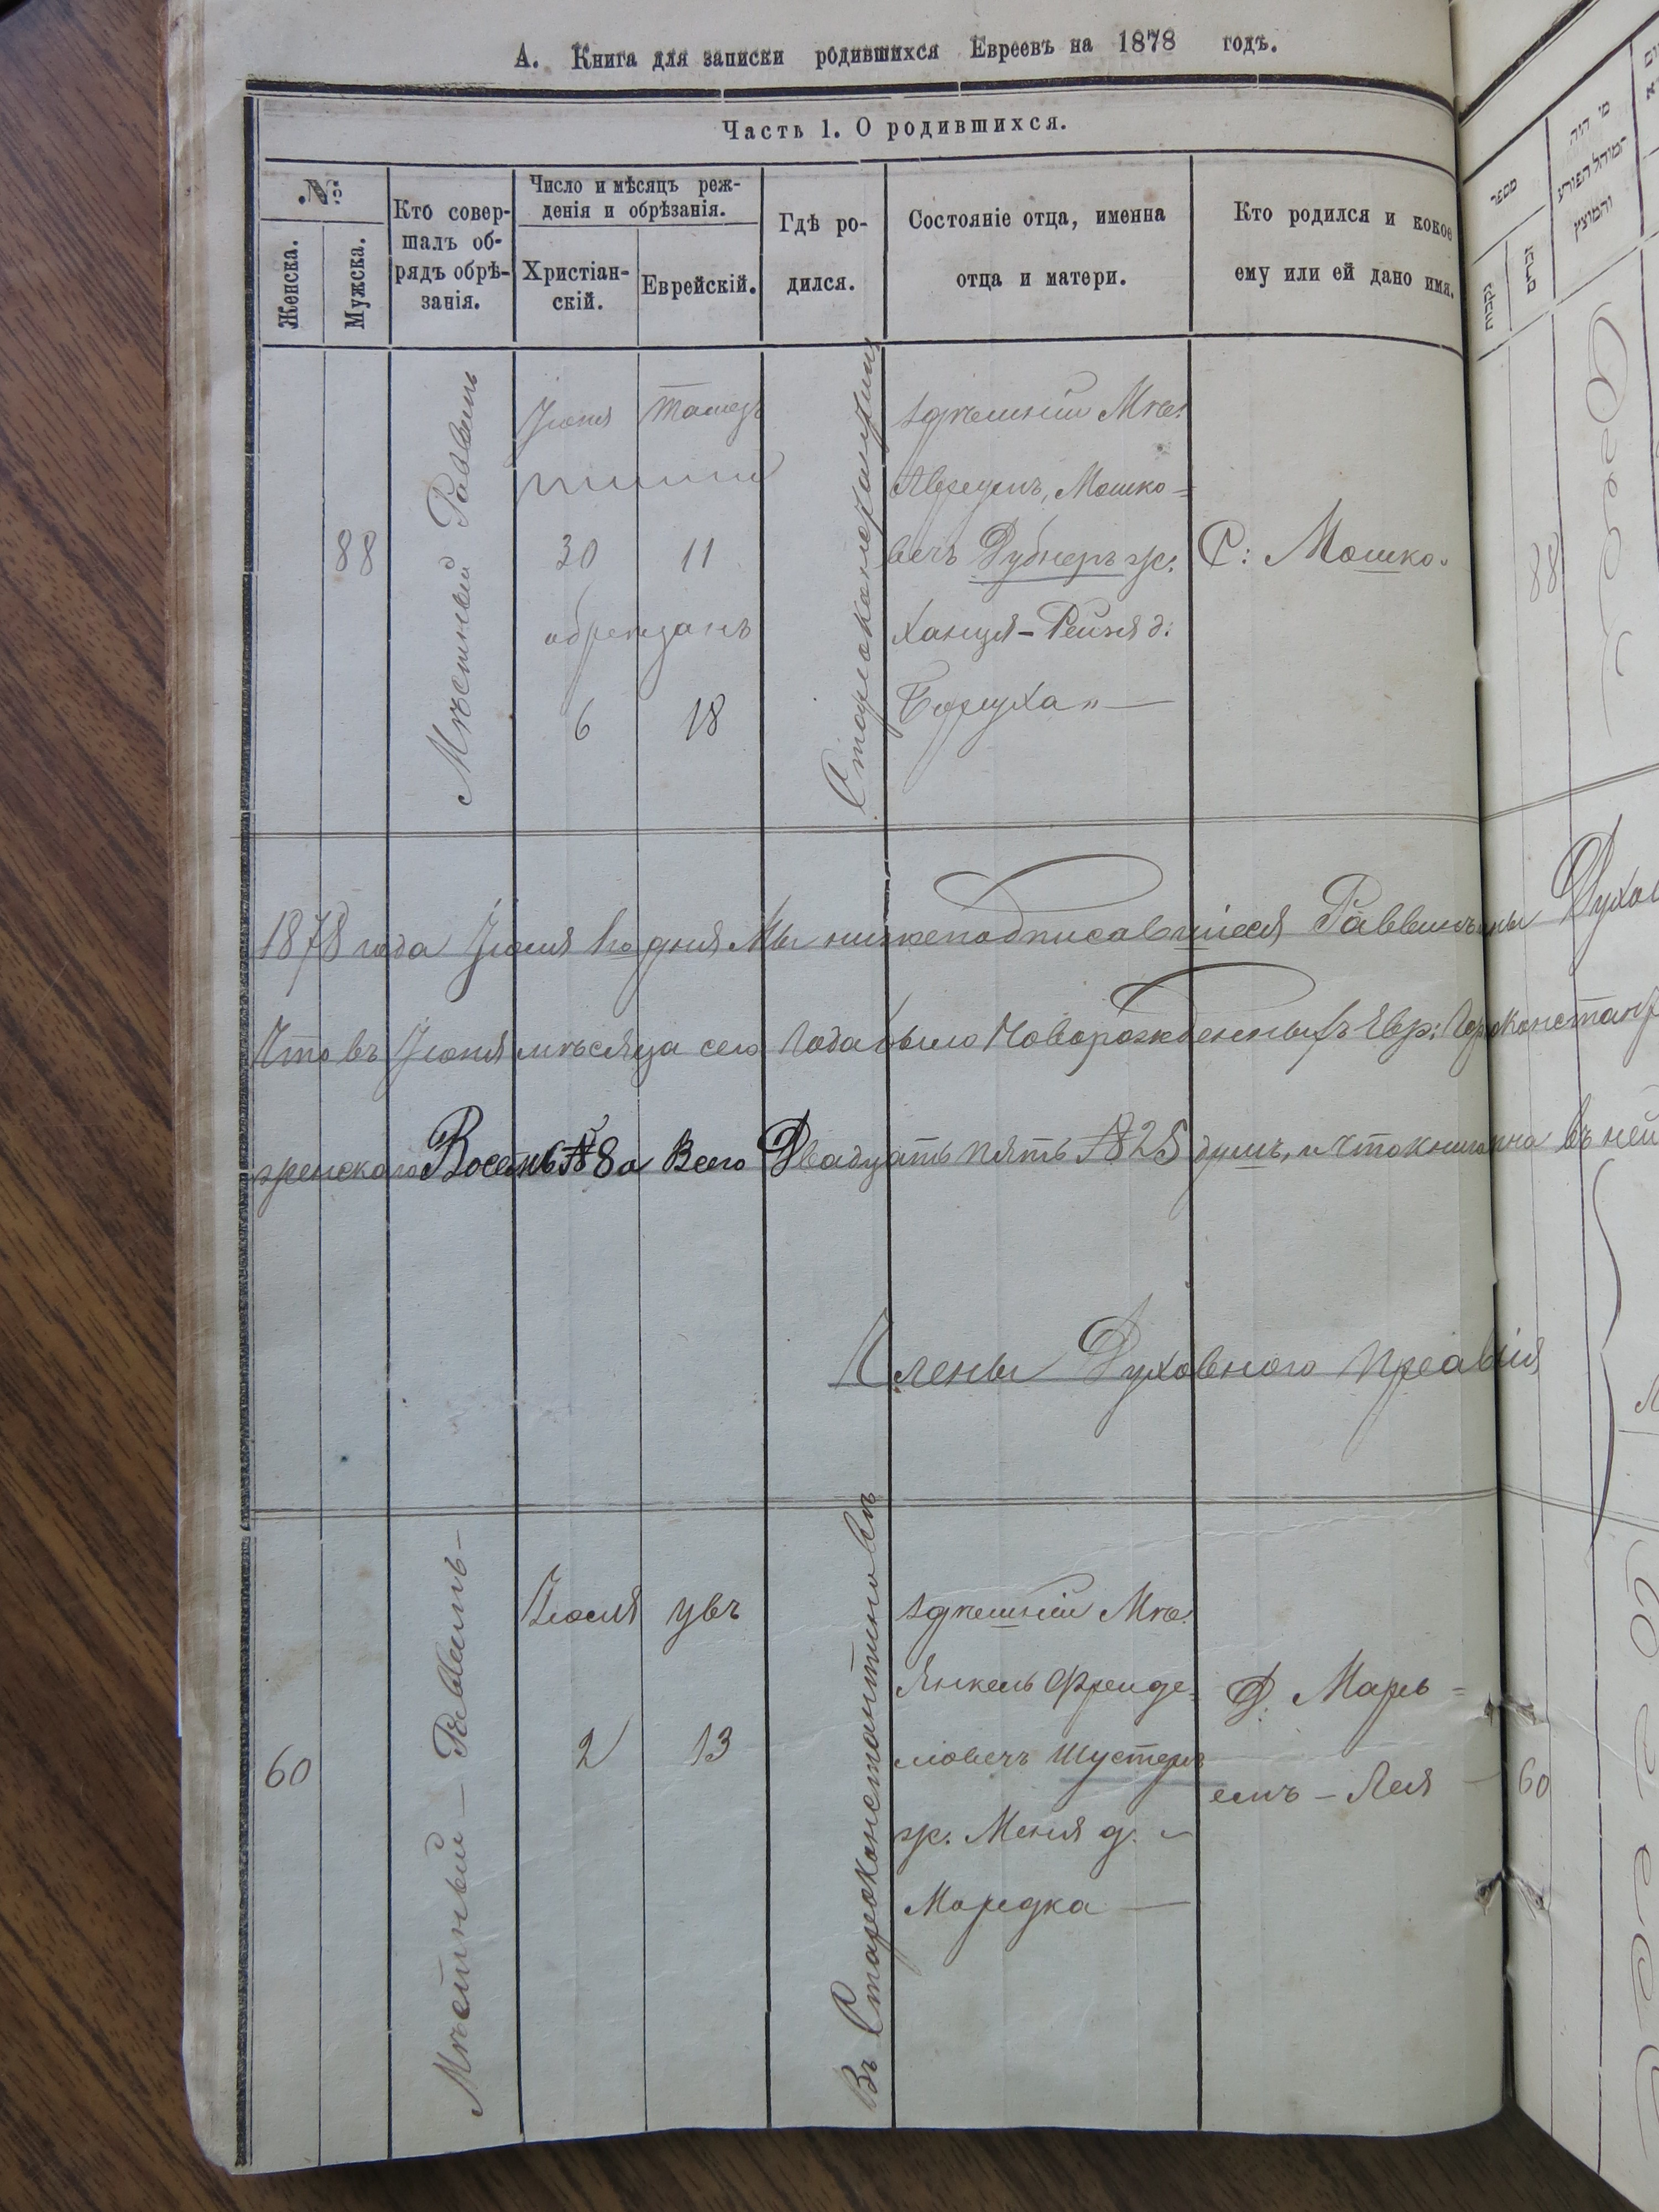 А. Книга для записки родившихся Евреевъ на 1878 годъ.
Часть 1. О родившихся.
№
Женска.
Мужска.
Кто совер-
шалъ об-
рядъ обрѣ-
занія.
Число и мѣсяцъ реж-
денія и обрѣзанія.
Христіан-
скій.
Еврейскій.
Гдѣ ро-
дился.
Состояніе отца, именна
отца и матери.
Кто родился и кокое
ему или ей дано имя.
88
Мѣстный Раввинъ
Іюня
30
обрезанъ
6
11
18
здѣшній Мѣ:
Аврумъ, Мошко=
вечъ Дубнеръ ж:
Ханця-Рейзя д:
Боруха
С: Мошко.
1878 года Іюля 1го дня Мы нижеподписавшіеся Раввинъ
Что въ Іюня мѣсяца сего Года было Новорожденныхъ Евр:
Восемь № 8 а Всего Двадцать пять № 25 душъ, и что книга въ ней
Члены Духовного
60
Мѣстный - Раввинъ -
Іюля
2
13
Въ Староконстантиновѣ
здѣшній Мѣ:
Янкель Фрейде=
ловечъ Шустеръ
ж. Меня д.
Мордка
Д: Марь=
емъ - Лея
מספר
נקבות
זכרים
מי היה
המוהל הפורע
והמוצץ
88
60